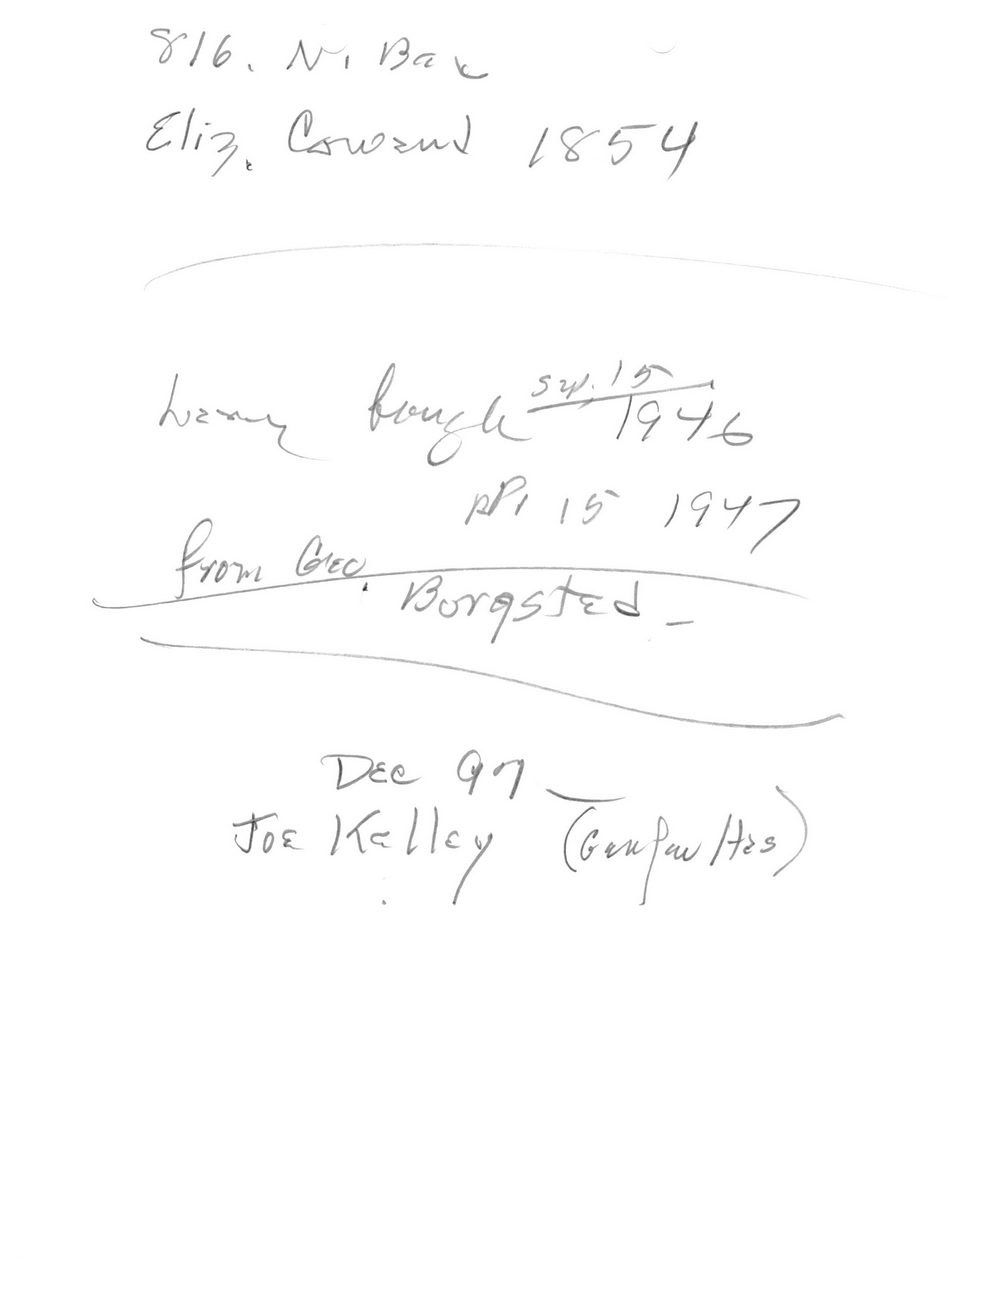 816. N. Bax
Eliz. Coward 1854
Sep. 15
bough 1946
apr 15 1947
from Geo.
Borgsted -
Dec 97 -
Joe Kelley (